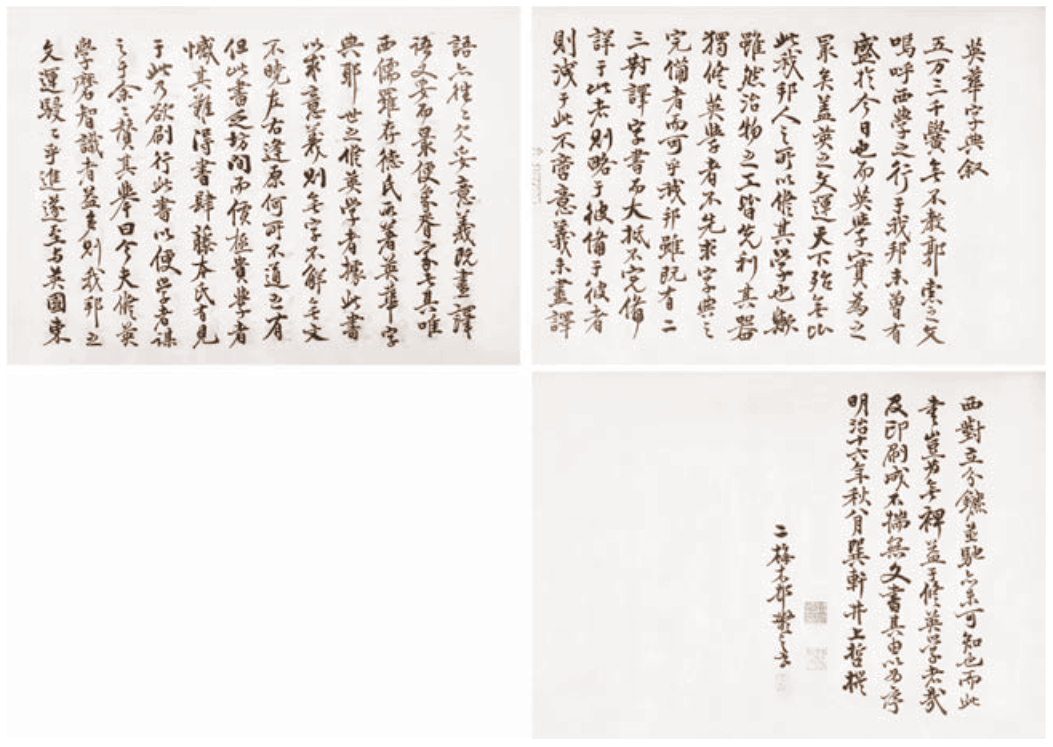 英華字典叙
五方三千黌無不教郭索之文
嗚呼西學之行于我邦未曾有
盛於今日也而英學實為之
最矣蓋英之文運天下殆無比
此我邦人之所以修其學也歟
雖然治物之工皆先利其器
獨修英學者不先求字典之
完備者而可乎我邦雖既有二
三對譯字書而大抵不完備
詳于此者則略于彼備于彼者
則淺于此不啻意義未盡譯
語亦往々欠妥意義既盡譯
語又妥而最便象胥家者其唯
西儒羅存德氏所著英華字
典耶世之修英學者據此書
以求意義則無字不解無文
不曉左右逢原何可不道之有
但此書乏坊間而價極貴學者
憾其難得書肆藤本氏有見
于此乃欲刷行此書以便學者謀
之于余々贊其舉曰今夫修英
學磨智識者益多則我邦之
文運駸々乎進遂至与英國東
西對立分鑣並馳亦未可知也而此
書豈為無裨益于修英學者哉
及印刷成不揣無文書其由以為序
明治十六年秋八月巽軒井上哲撰
二梅木邨書